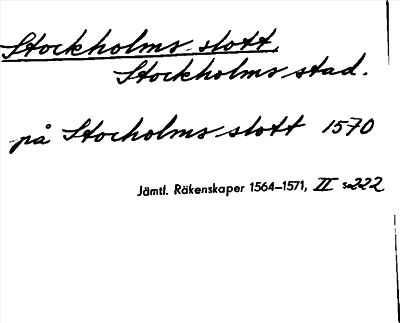 Stockholms slott,
Stockholms stad.
på Stocholms slott 1570
Jämtl. Räkenskaper 1564-1571, II s.222